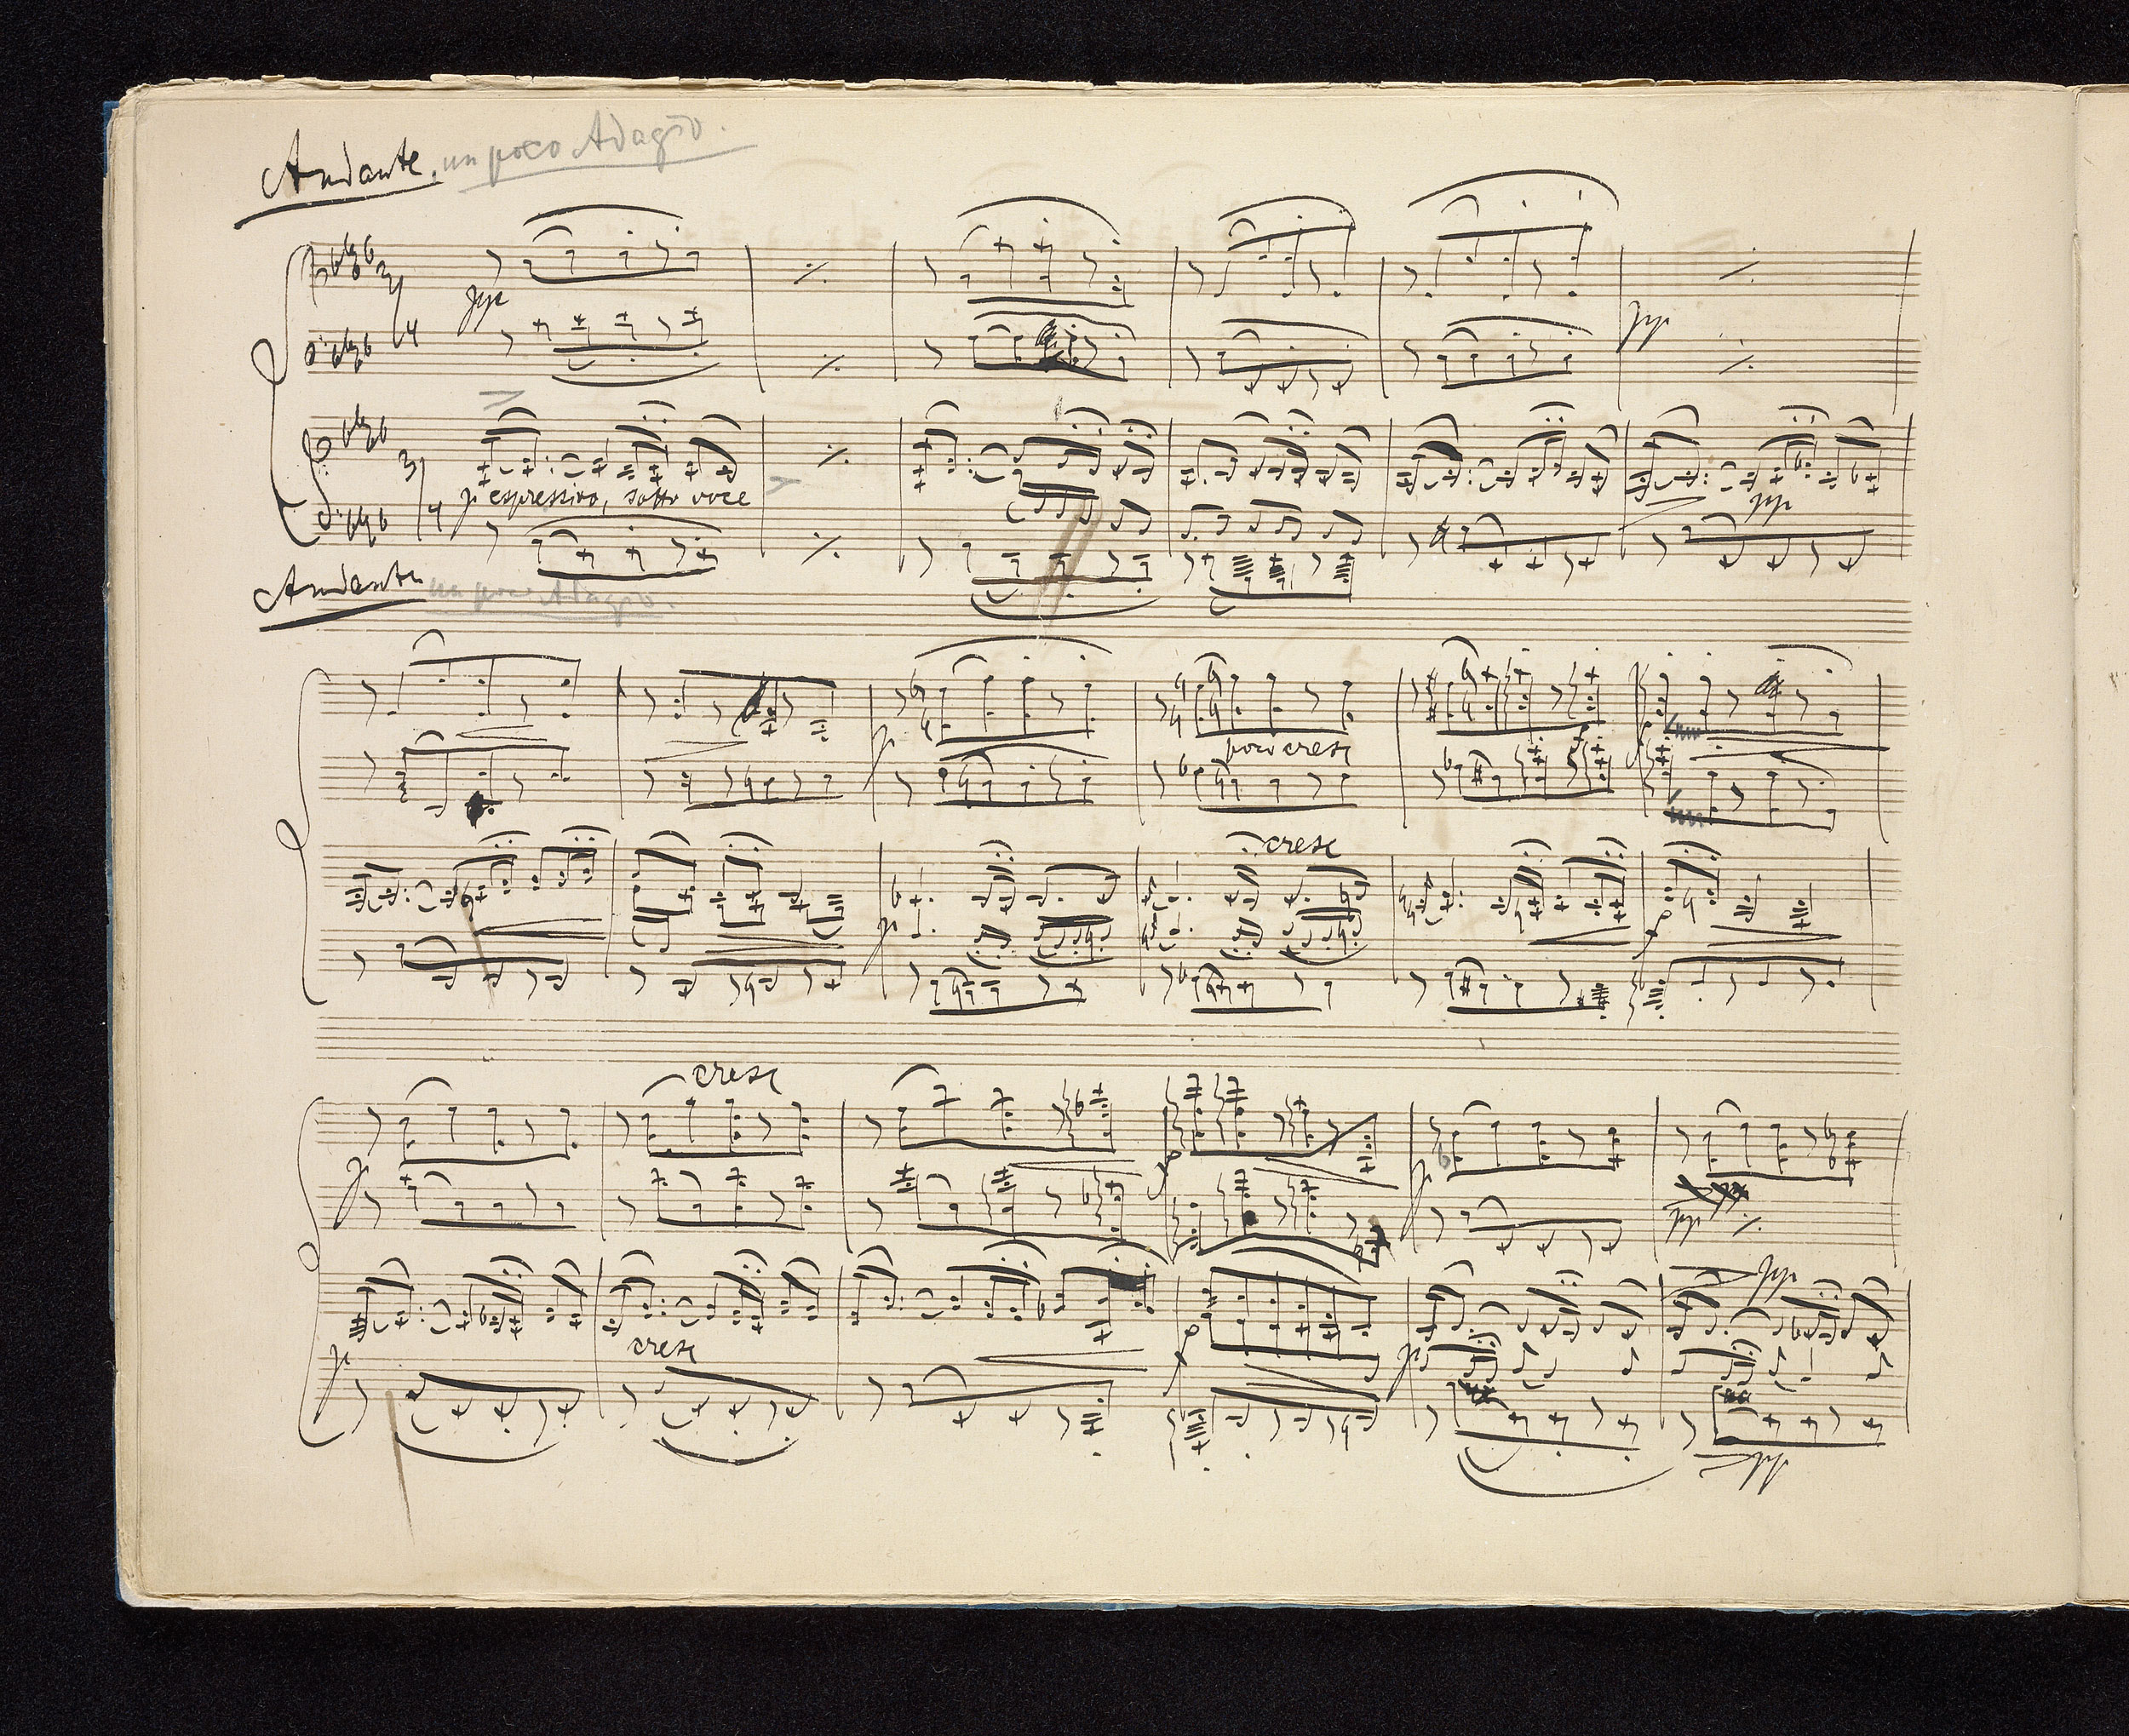 Andante. un poco Adagio.
3/4
pp
pp
3/4
p espressivo, sotto voce
pp
Andante un poco Adagio.
p
poco cresc
cresc
p
cresc
p
p
pp
pp
cresc
p
p
pp